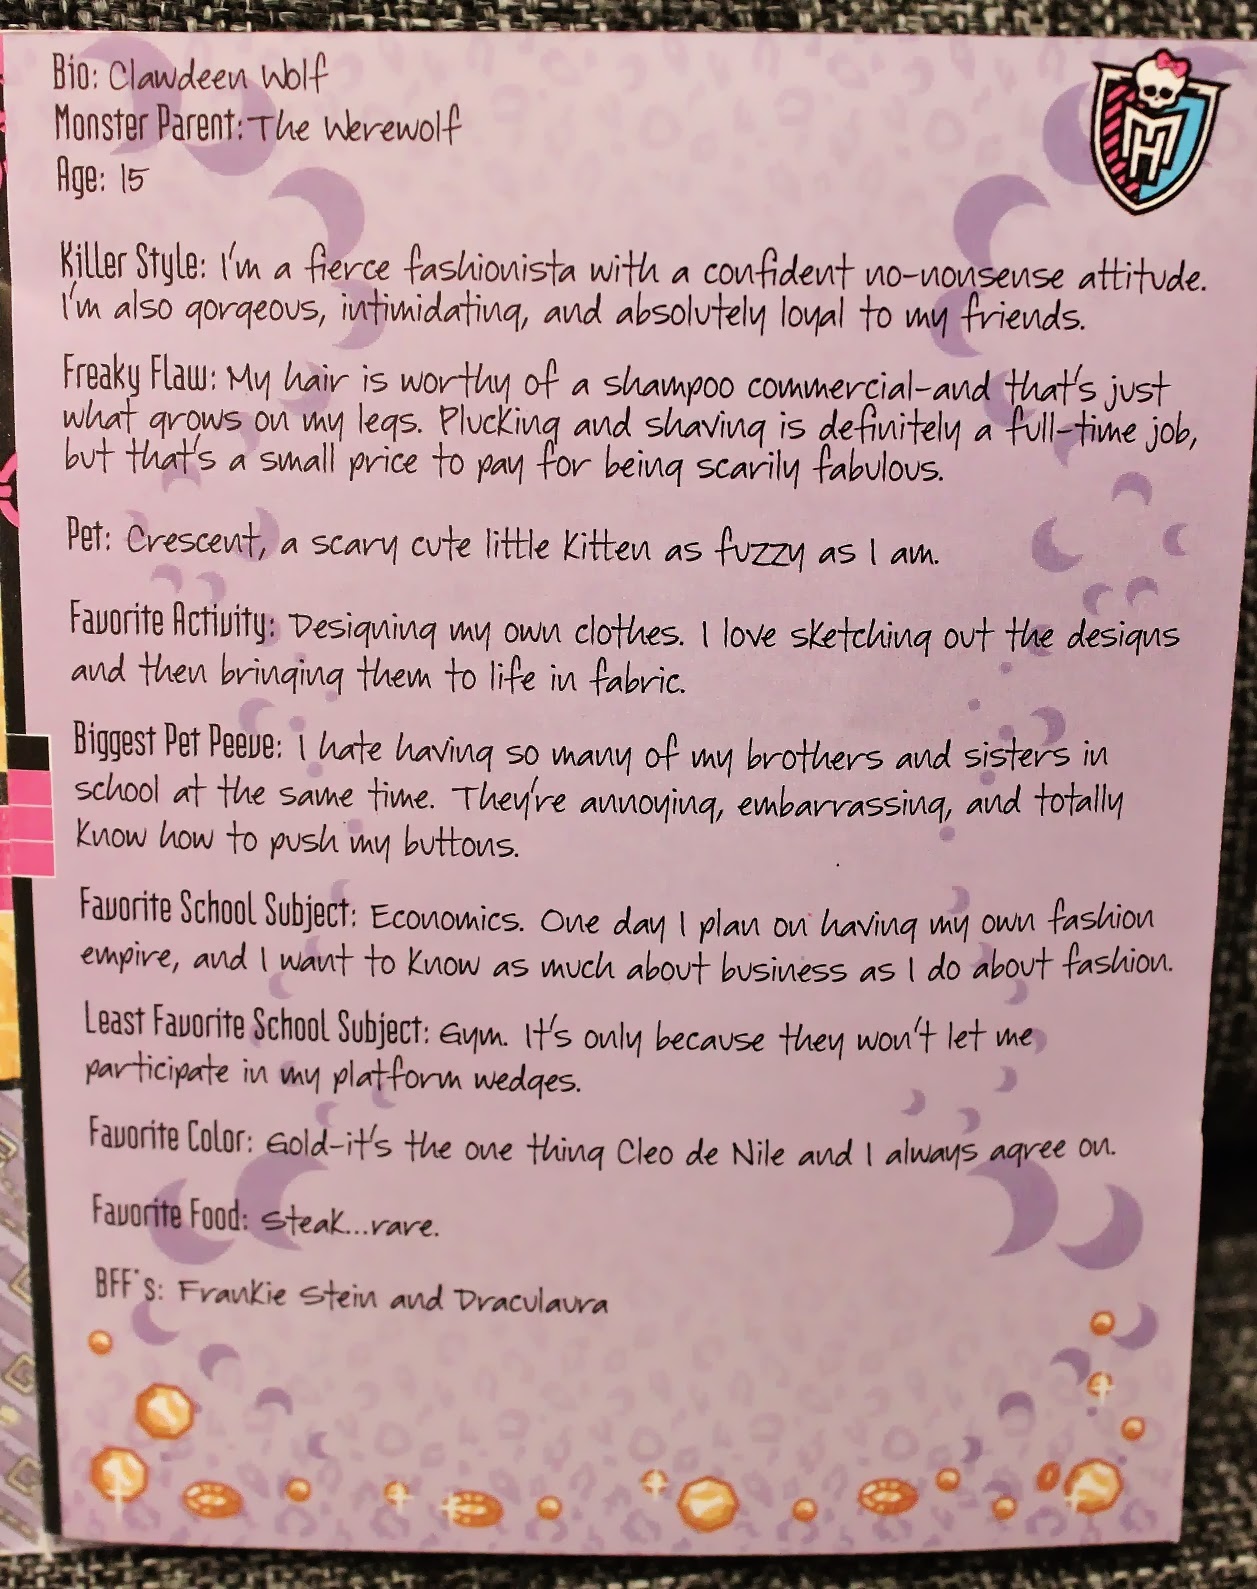 Bio: Clawdeen Wolf
Monster Parent: The Werewolf
Age: 15
MH
Killer Style: I'm a fierce fashionista with a confident no-nonsense attitude.
I'm also gorgeous, intimidating, and absolutely loyal to my friends.
Freaky Flaw: My hair is worthy of a shampoo commercial-and that's just
what grows on my legs. Plucking and shaving is definitely a full-time job,
but that's a small price to pay for being scarily fabulous.
Pet: Crescent, a scary cute little kitten as fuzzy as I am.
Favorite Activity: Designing my own clothes. I love sketching out the designs
and then bringing them to life in fabric.
Biggest Pet Peeve: I hate having so many of my brothers and sisters in
school at the same time. They're annoying, embarrassing, and totally
know how to push my buttons.
Favorite School Subject: Economics. One day I plan on having my own fashion
empire, and I want to know as much about business as I do about fashion.
Least Favorite School Subject: Gym. It's only because they won't let me
participate in my platform wedges.
Favorite Color: Gold-it's the one thing Cleo de Nile and I always agree on.
Favorite Food: Steak...rare.
BFF's: Frankie Stein and Draculaura